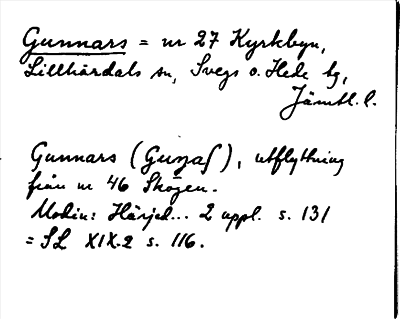 Gunnars = nr 27 Kyrkbyn,
Lillhärdals sn, Svegs o. Hede tg,
Jämtl. l.
Gunnars (Guņaʃ), utflyttning
från nr 46 Skogen.
Modin: Härjed... 2 uppl. s. 131
= SL XIX.2 s. 116.